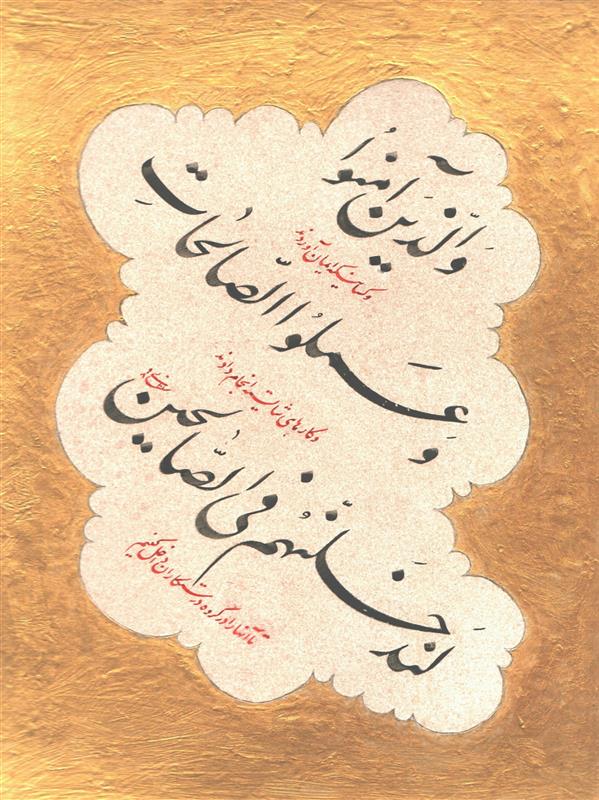 وَالَّذینَ آمَنُوا
وکسانیکه ایمان آوردند
وَ عَمِلُوا الصّالِحاتِ
و کارهای شایسته انجام دادند
لَنُدخِلَنَّهُم فی الصّالِحین
تا آنها را در گروه درستکاران داخل کنیم